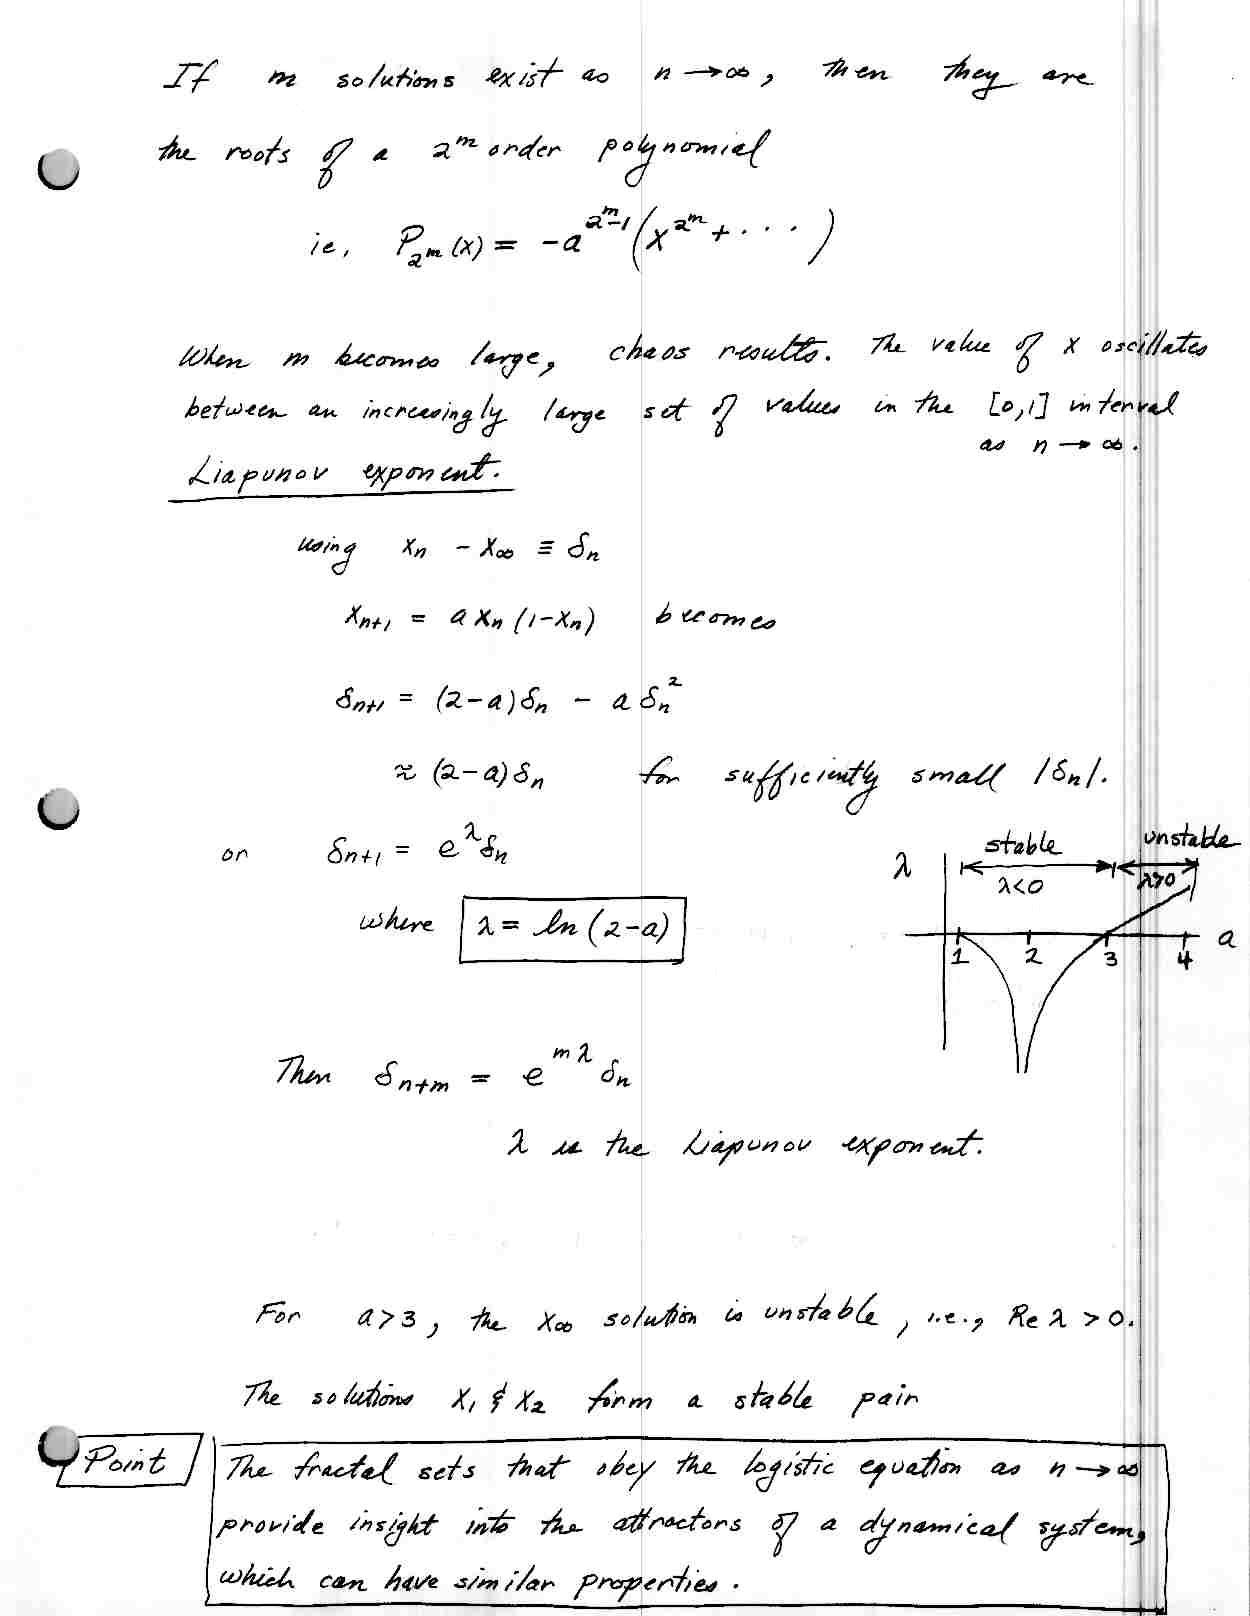 If m solutions exist as n → ∞, then they are
the roots of a 2^m order polynomial
ie, P_{2^m}(x) = -a^{2^m-1}(x^{2^m} + ···· )
When m becomes large, chaos results. The value of x oscillates
between an increasingly large set of values in the [0,1] interval
as n → ∞.
Liapunov exponent.
using x_n - x_∞ ≡ δ_n
x_{n+1} = a x_n (1-x_n) becomes
δ_{n+1} = (2-a)δ_n - a δ_n^2
≈ (2-a)δ_n for sufficiently small |δ_n|.
or δ_{n+1} = e^λ δ_n
where λ = ln (2-a)
unstable
stable
λ
λ<0
λ>0
a
1 2 3 4
Then δ_{n+m} = e^{mλ} δ_n
λ is the Liapunov exponent.
For a>3, the x_∞ solution is unstable, i.e., Re λ > 0.
The solutions x_1 & x_2 form a stable pair
Point The fractal sets that obey the logistic equation as n → ∞
provide insight into the attractors of a dynamical system,
which can have similar properties.